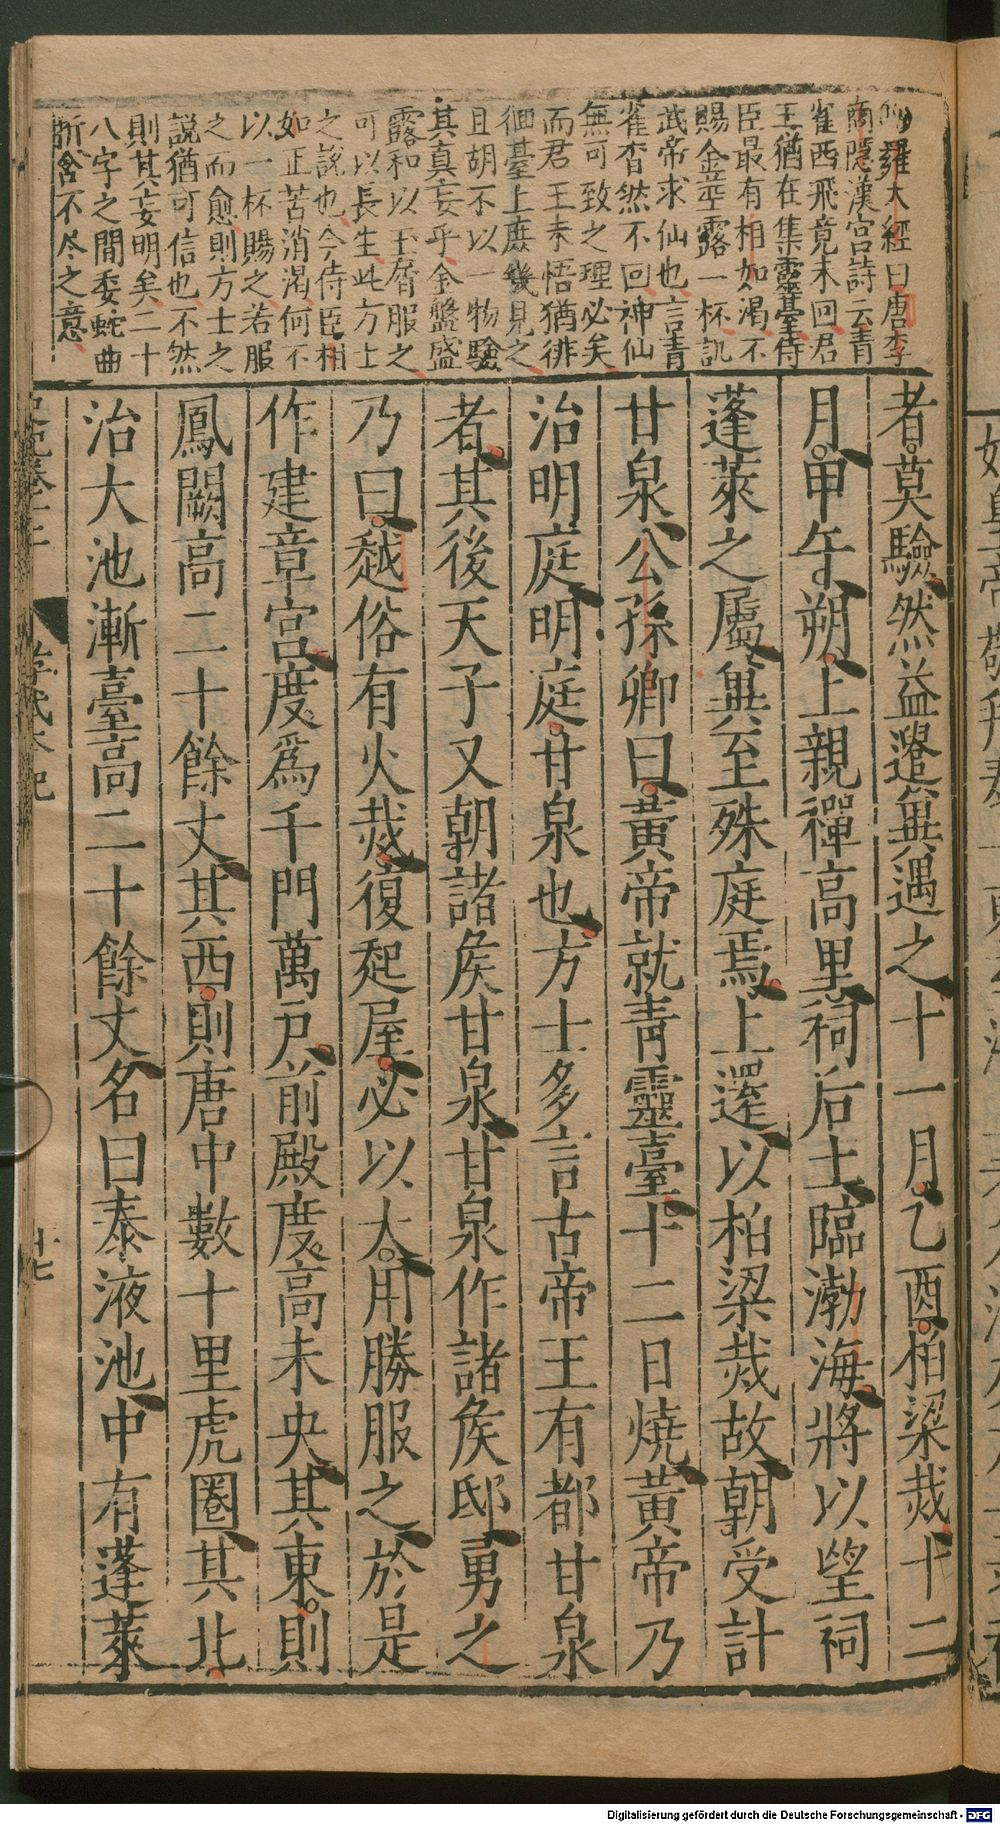 羅大經曰唐李
商隱漢宮詩云青
雀西飛竟未回君
王猶在集靈臺侍
臣最有相如渴不
賜金莖露一杯訊
武帝求仙也言青
雀杳然不回神仙
無可致之理必矣
而君王未悟猶徘
徊臺上庶幾見之
且胡不以一物驗
其真妄乎金盤盛
露和以玉屑服之
可以長生此方士
之說也今侍臣相
如正苦消渴何不
以一杯賜之若服
之而愈則方士之
說猶可信也不然
則其妄明矣二十
八字之間委蛇曲
折含不尽之意
者莫驗然益遣兾遇之十一月乙酉柏梁烖十二
月甲午朔上親禪高里祠后土臨渤海將以望祠
蓬萊之屬兾至殊庭焉上還以柏梁烖故朝受計
甘泉公孫卿曰黃帝就青靈臺十二日燒黃帝乃
治明庭明庭甘泉也方士多言古帝王有都甘泉
者其後天子又朝諸矦甘泉甘泉作諸矦邸勇之
乃曰越俗有火烖復起屋必以大用勝服之於是
作建章宮度爲千門萬戸前殿度高未央其東則
鳳闕高二十餘丈其西則唐中數十里虎圈其北
治大池漸臺高二十餘丈名曰泰液池中有蓬萊
孝武本紀
廿七
Digitalisierung gefördert durch die Deutsche Forschungsgemeinschaft - DFG